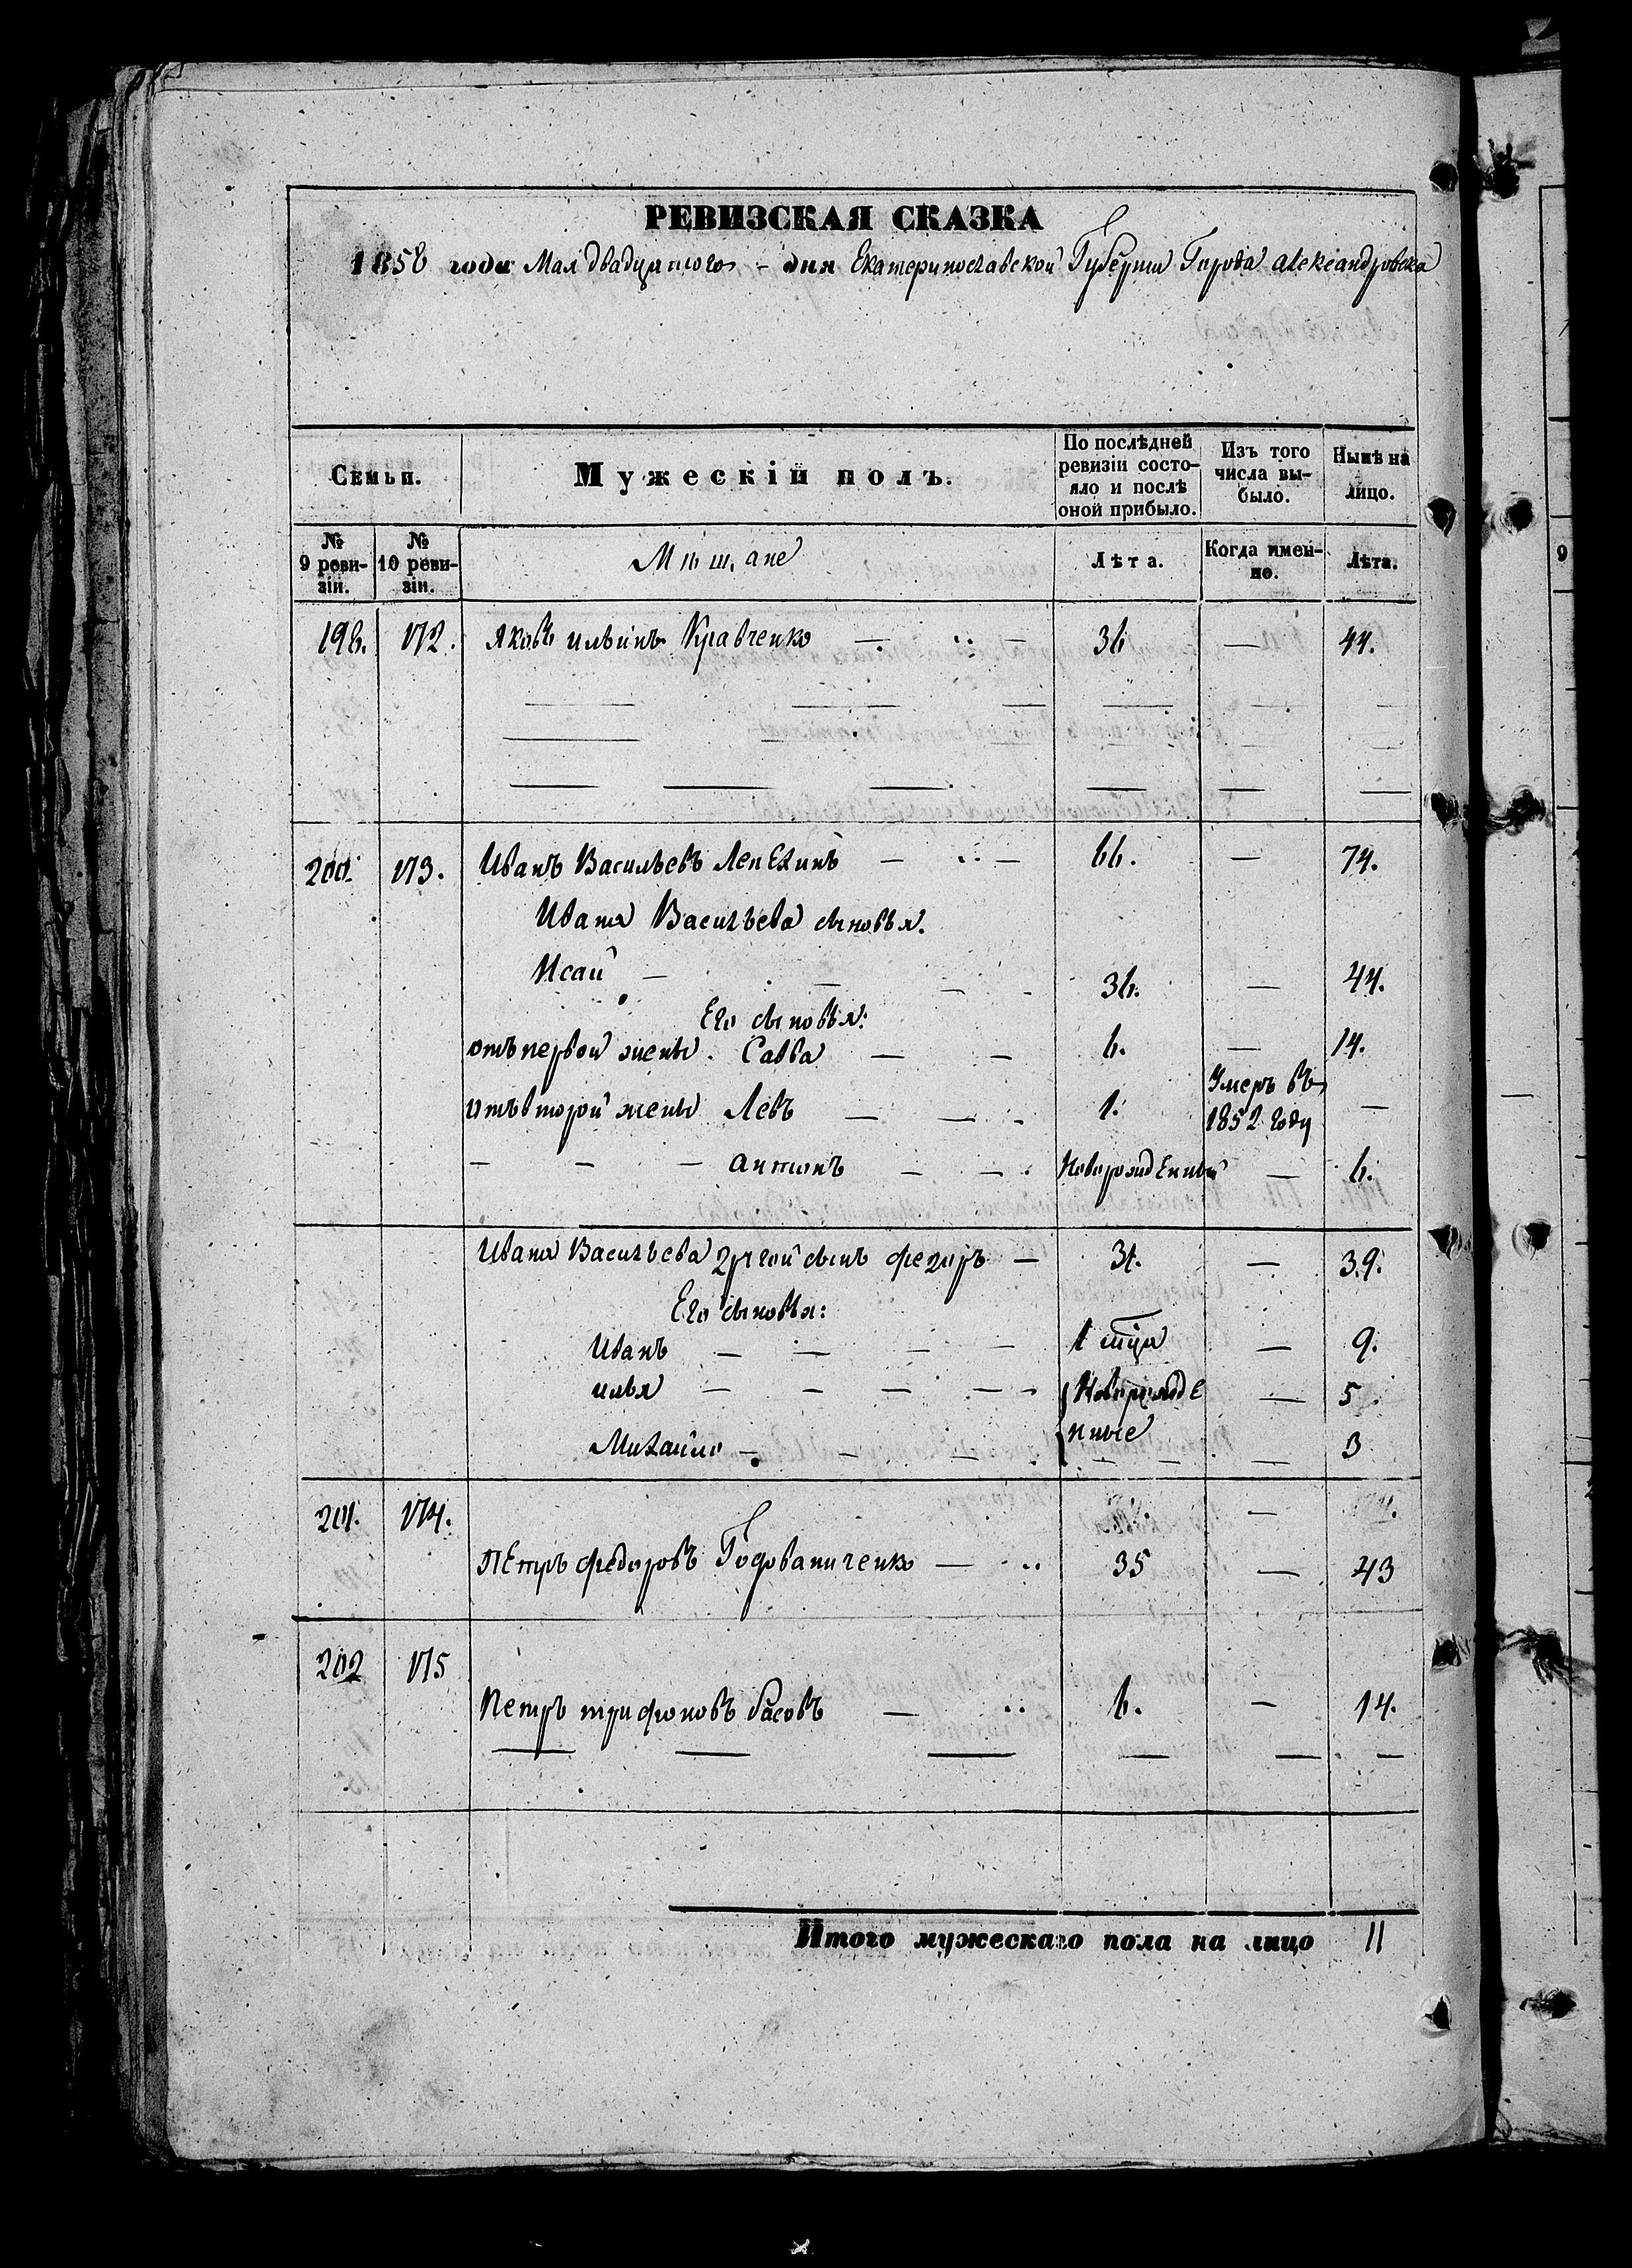 РЕВИЗСКАЯ СКАЗКА
1858 года Мая двадцатого дня Екатеринославской Губерніи Города Александровска
Семьи.
Мужескій полъ.
По послѣдней ревизіи состо-
яло и послѣ
оной прибыло.
Изъ того
числа вы-
было.
Нынѣ на
лицо.
№
9 реви-
зіи.
№
10 реви-
зіи.
Мѣщане
Лѣта.
Когда имен-
но.
Лѣта.
198. 172. Яковъ ильинъ Кравченко — 36 — 44.
200. 173. Иванъ Васильевъ Лепехинъ — 66. — 74.
Ивана Васильева сыновья.
Исай — 36. — 44.
Его сыновья:
отъ первой жены. Савва — 6. — 14.
отъ второй жены Левъ — 1. Умеръ въ
1852 году —
— — — антонъ — Новорожденный — 6.
Ивана Васильева другой сынъ федоръ — 31. — 39.
Его сыновья:
Иванъ — 1 — 9.
илья — Новорожде — 5
Михайло — нные — 3
201. 174.
Петръ федоровъ Годованиченко — 35 — 43
202 175
Петръ трифоновъ басовъ — 6. — 14.
Итого мужескаго пола на лицо 11
9